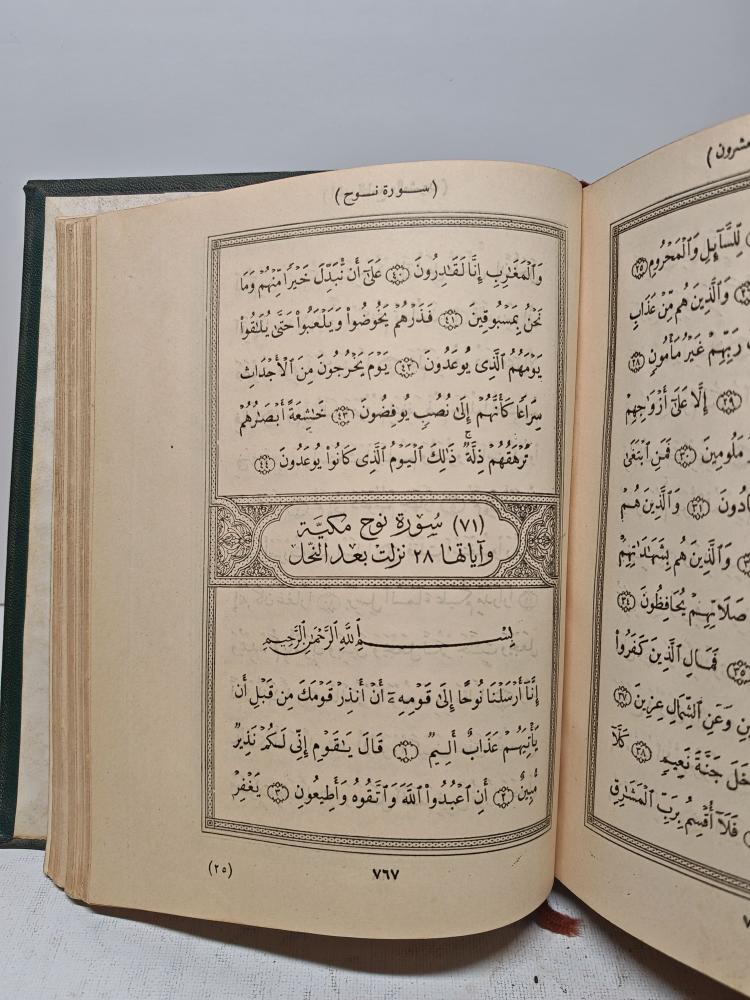 لِّلسَّآئِلِ وَٱلْمَحْرُومِ ٢٥
وَٱلَّذِينَ هُم مِّنْ عَذَابِ
رَبِّهِمْ غَيْرُ مَأْمُونٍ ٢٨
٢٩ إِلَّا عَلَىٰٓ أَزْوَٰجِهِمْ
مَلُومِينَ ٣٠ فَمَنِ ٱبْتَغَىٰ
٣١ وَٱلَّذِينَ هُمْ
وَٱلَّذِينَ هُم بِشَهَٰدَٰتِهِمْ
صَلَاتِهِمْ يُحَافِظُونَ ٣٤
٣٥ فَمَالِ ٱلَّذِينَ كَفَرُواْ
وَعَنِ ٱلشِّمَالِ عِزِينَ ٣٧
جَنَّةَ نَعِيمٍ ٣٨ كَلَّآ
فَلَآ أُقْسِمُ بِرَبِّ ٱلْمَشَٰرِقِ
(ســورة نــوح)
وَٱلْمَغَٰرِبِ إِنَّا لَقَٰدِرُونَ ٤٠ عَلَىٰٓ أَن نُّبَدِّلَ خَيْرًا مِّنْهُمْ وَمَا
نَحْنُ بِمَسْبُوقِينَ ٤١ فَذَرْهُمْ يَخُوضُواْ وَيَلْعَبُواْ حَتَّىٰ يُلَٰقُواْ
يَوْمَهُمُ ٱلَّذِى يُوعَدُونَ ٤٢ يَوْمَ يَخْرُجُونَ مِنَ ٱلْأَجْدَاثِ
سِرَاعًا كَأَنَّهُمْ إِلَىٰ نُصُبٍ يُوفِضُونَ ٤٣ خَٰشِعَةً أَبْصَٰرُهُمْ
تَرْهَقُهُمْ ذِلَّةٌ ۚ ذَٰلِكَ ٱلْيَوْمُ ٱلَّذِى كَانُواْ يُوعَدُونَ ٤٤
(٧١) سُورَة نوح مكيَّة
وآياتها ٢٨ نزلت بعد النحل
بِسْمِ ٱللَّهِ ٱلرَّحْمَٰنِ ٱلرَّحِيمِ
إِنَّآ أَرْسَلْنَا نُوحًا إِلَىٰ قَوْمِهِۦٓ أَنْ أَنذِرْ قَوْمَكَ مِن قَبْلِ أَن
يَأْتِيَهُمْ عَذَابٌ أَلِيمٌ ١ قَالَ يَٰقَوْمِ إِنِّى لَكُمْ نَذِيرٌ
مُّبِينٌ ٢ أَنِ ٱعْبُدُواْ ٱللَّهَ وَٱتَّقُوهُ وَأَطِيعُونِ ٣ يَغْفِرْ
٧٦٧
(٢٥)